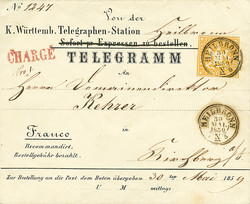 No 1247
Von der
K. Württemb. Telegraphen-Station Heilbronn
Sofort pr Expressen zu bestellen.
CHARGÉ
TELEGRAMM
No 1.
An
Herrn
Rehrer
HEILBRONN
30
MAI
1859
Franco
in
Recommandirt.
Bestellgebühr bezahlt.
Kirchberg a/
HEILBRONN
30
MAI
1859
Zur Bestellung an die Post dem Boten übergeben 30 ten Mai 1859
U M mittags